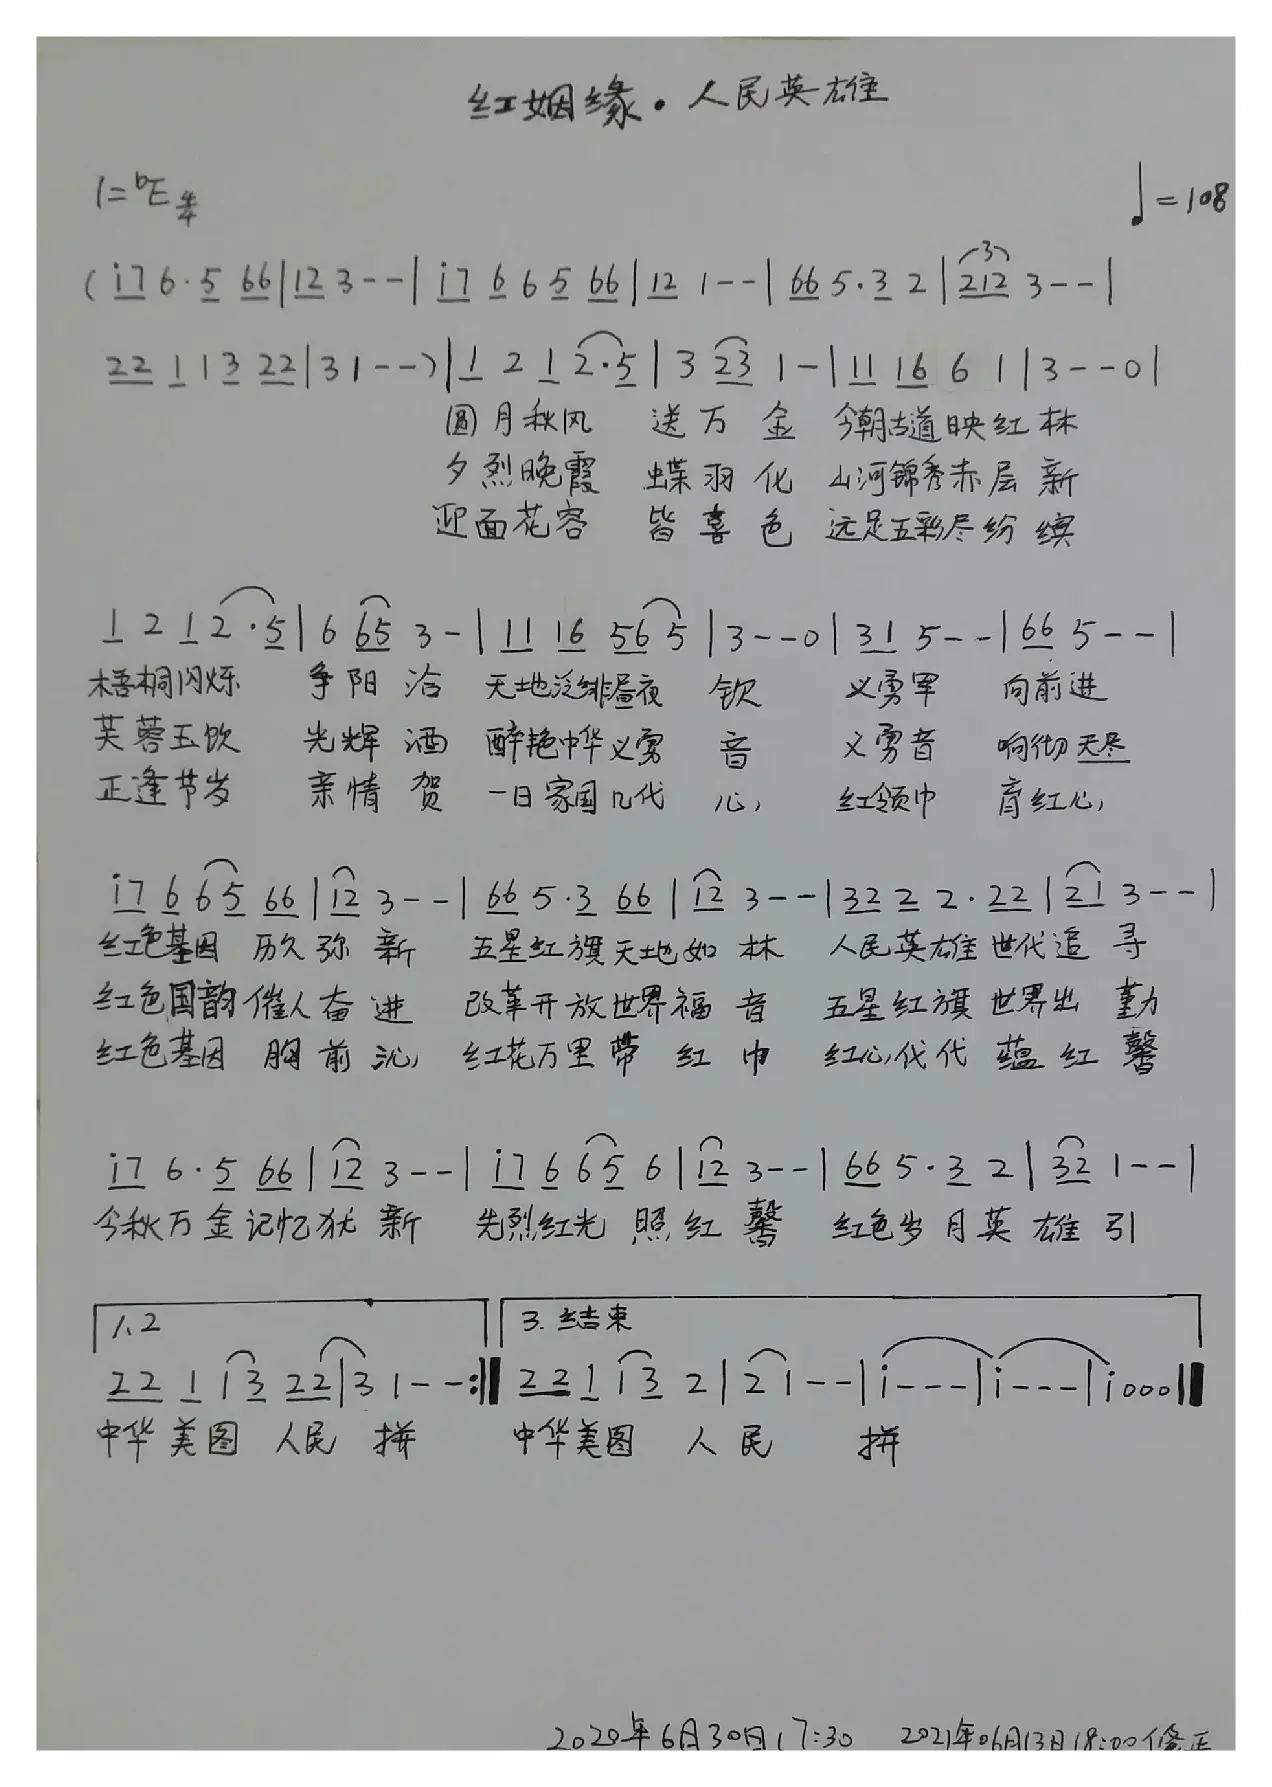 红姻缘·人民英雄
1=bE 4/4 ♩=108
( i7 6·5 66 | 12 3-- | i7 6 6 5 66 | 12 1-- | 66 5·3 2 | 212 3-- |
22 1 1 3 22 | 3 1-- ) | 1 2 1 2·5 | 3 23 1- | 11 16 6 1 | 3--0 |
圆月秋风 送万金 今朝古道映红林
夕烈晚霞 蝶羽化 山河锦秀赤层新
迎面花容 皆喜色 远足五彩尽纷缤
1 2 1 2·5 | 6 65 3- | 11 16 56 5 | 3--0 | 31 5-- | 66 5-- |
梧桐闪烁 争阳洽 天地泛绯昼夜 钦 义勇军 向前进
芙蓉玉饮 光辉酒 醉艳中华义勇 音 义勇音 响彻天尽
正逢节岁 亲情贺 一日家国几代 心, 红领巾 育红心,
i7 6 6 5 66 | 12 3-- | 66 5·3 66 | 12 3-- | 32 2 2 2·22 | 21 3-- |
红色基因 历久弥新 五星红旗天地如林 人民英雄世代追寻
红色国韵催人奋进 改革开放世界福音 五星红旗世界出勤
红色基因 胸前沁, 红花万里带红巾 红心代代蕴红馨
i7 6·5 66 | 12 3-- | i7 6 6 5 6 | 12 3-- | 66 5·3 2 | 32 1-- |
今秋万金记忆犹新 先烈红光照红馨 红色岁月英雄引
1、2 3.结束
22 1 1 3 22 | 3 1--:‖ 22 1 1 3 2 | 2 1-- | i--- | i--- | i000 ‖
中华美图 人民拼 中华美图 人民 拼
2020年6月30日17:30 2021年06月13日18:00修正